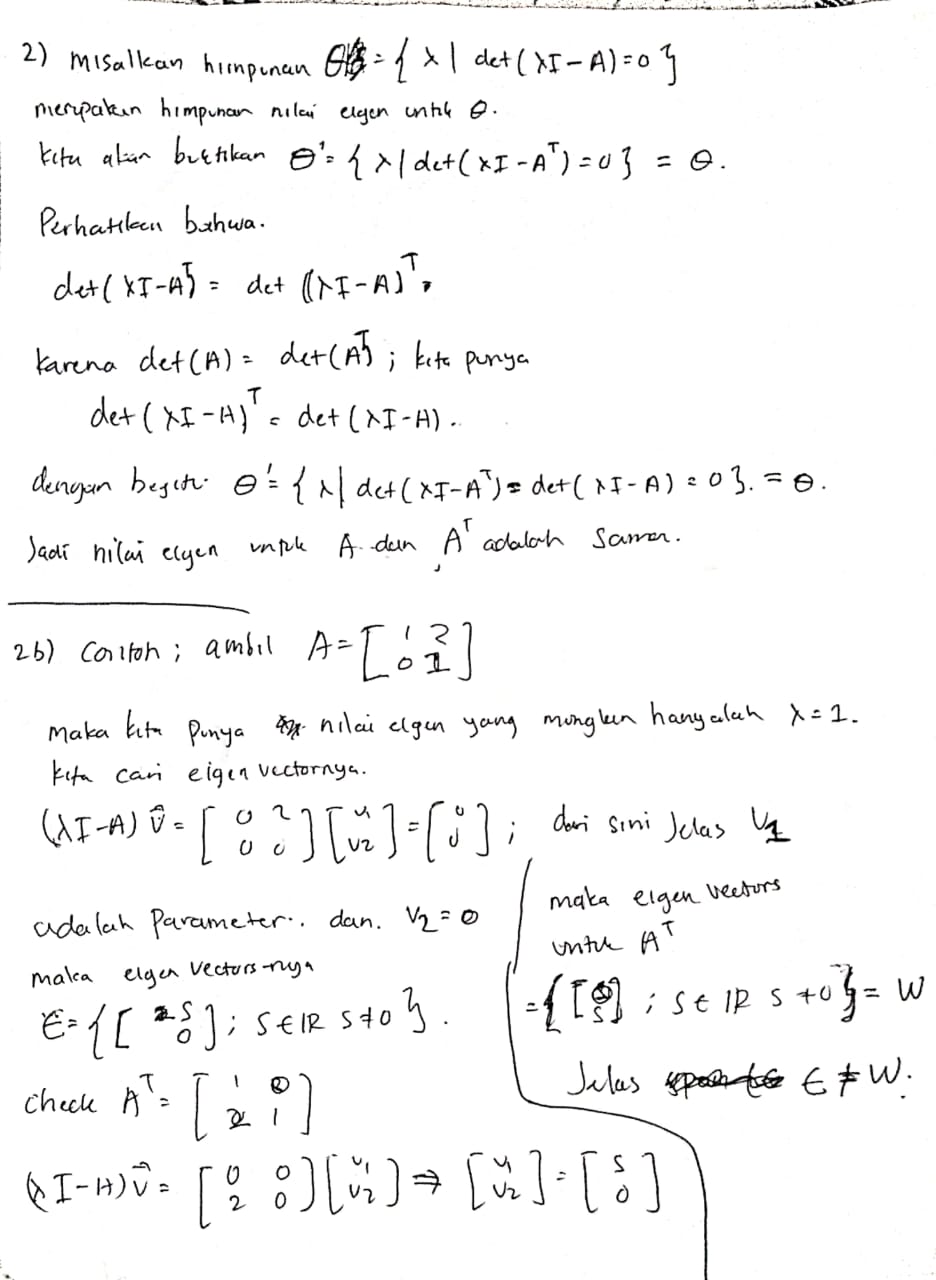 2) misalkan himpunan θ = { λ | det(λI-A)=0 }
merupakan himpunan nilai eigen untuk θ.
kita akan buktikan θ'= { λ | det(λI-Aᵀ)=0 } = θ.
Perhatikan bahwa.
det(λI-Aᵀ) = det ((λI-A)ᵀ.
karena det(A) = det(Aᵀ) ; kita punya
det(λI-A)ᵀ = det(λI-A).
dengan begitu θ'= { λ | det(λI-Aᵀ) = det(λI-A) = 0 }. = θ.
Jadi nilai eigen untuk A dan Aᵀ adalah sama.
2b) Contoh ; ambil A = [ 1 2
0 1 ]
maka kita punya nilai eigen yang mungkin hanyalah λ=1.
kita cari eigen vectornya.
(λI-A) v̂ = [ 0 2 ] [ v₁ ] = [ 0 ] ; dari sini Jelas V₁
[ 0 0 ] [ v₂ ] [ 0 ]
adalah Parameter.. dan. V₂=0
maka eigen vectors-nya
E={ [ s
0 ] ; s∈IR s≠0 }.
check Aᵀ= [ 1 0
2 1 ]
(λI-A)v̂ = [ 0 0 ] [ v₁ ] ⇒ [ v₁ ] = [ s ]
[ 2 0 ] [ v₂ ] [ v₂ ] [ 0 ]
maka eigen vectors
untuk Aᵀ
={ [ 0
s ] ; s∈IR s≠0 }= W
Jelas E≠W.